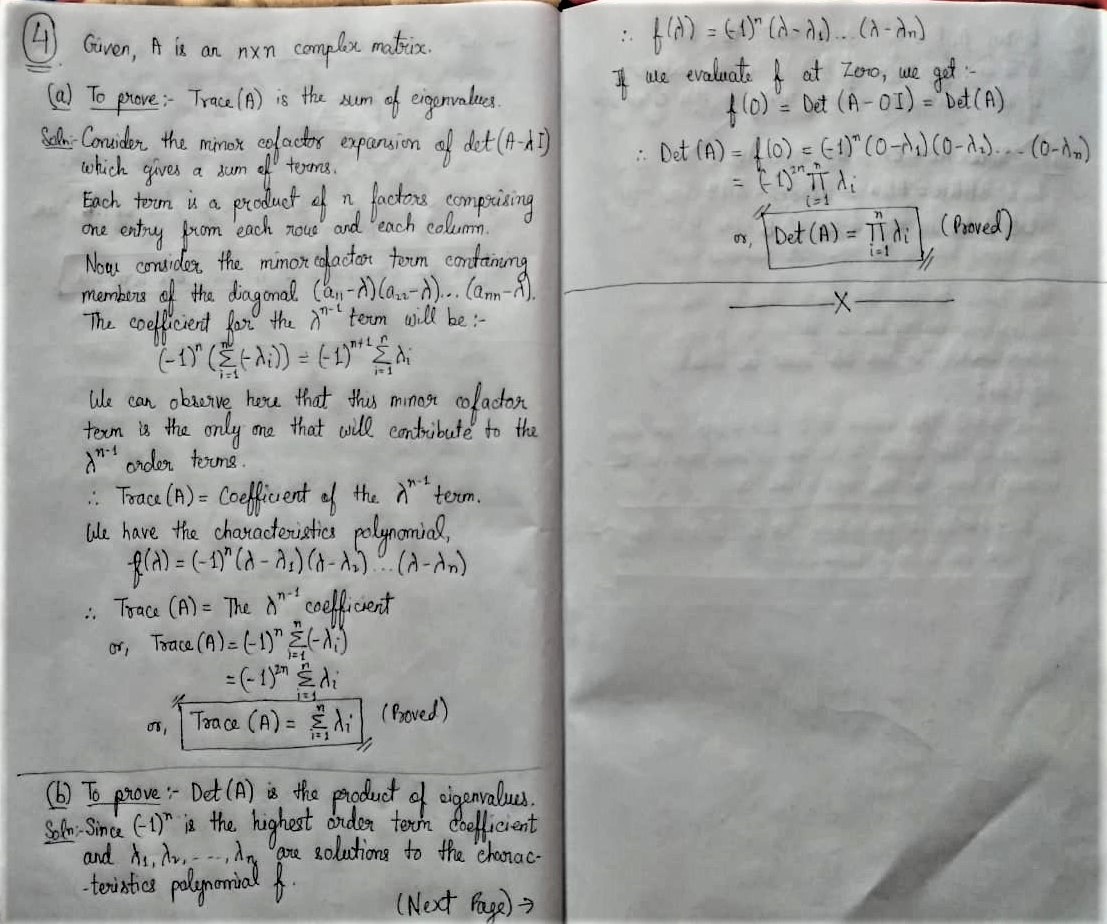 4 Given, A is an n×n complex matrix.
(a) To prove:- Trace(A) is the sum of eigenvalues.
Soln:- Consider the minor cofactor expansion of det(A-λI)
which gives a sum of terms.
Each term is a product of n factors comprising
one entry from each row and each column.
Now consider the minor cofactor term containing
members of the diagonal (a₁₁-λ)(a₂₂-λ)...(aₙₙ-λ).
The coefficient for the λⁿ⁻¹ term will be:-
(-1)ⁿ (Σⁿᵢ₌₁(-λᵢ)) = (-1)ⁿ⁺¹ Σⁿᵢ₌₁ λᵢ
We can observe here that this minor cofactor
term is the only one that will contribute to the
λⁿ⁻¹ order terms.
∴ Trace(A) = Coefficient of the λⁿ⁻¹ term.
We have the characteristics polynomial,
f(λ) = (-1)ⁿ (λ-λ₁)(λ-λ₂)...(λ-λₙ)
∴ Trace (A) = The λⁿ⁻¹ coefficient
or, Trace(A) = (-1)ⁿ Σⁿᵢ₌₁(-λᵢ)
= (-1)²ⁿ Σⁿᵢ₌₁ λᵢ
or, Trace (A) = Σⁿᵢ₌₁ λᵢ (Proved)
(b) To prove:- Det(A) is the product of eigenvalues.
Soln:- Since (-1)ⁿ is the highest order term coefficient
and λ₁, λ₂, ---, λₙ are solutions to the charac-
-teristics polynomial f.
(Next Page) →
∴ f(λ) = (-1)ⁿ (λ-λ₁)...(λ-λₙ)
If we evaluate f at Zero, we get:-
f(0) = Det (A-0I) = Det(A)
∴ Det(A) = f(0) = (-1)ⁿ (0-λ₁)(0-λ₂)....(0-λₙ)
= (-1)²ⁿ Πⁿᵢ₌₁ λᵢ
or, Det(A) = Πⁿᵢ₌₁ λᵢ (Proved)
X